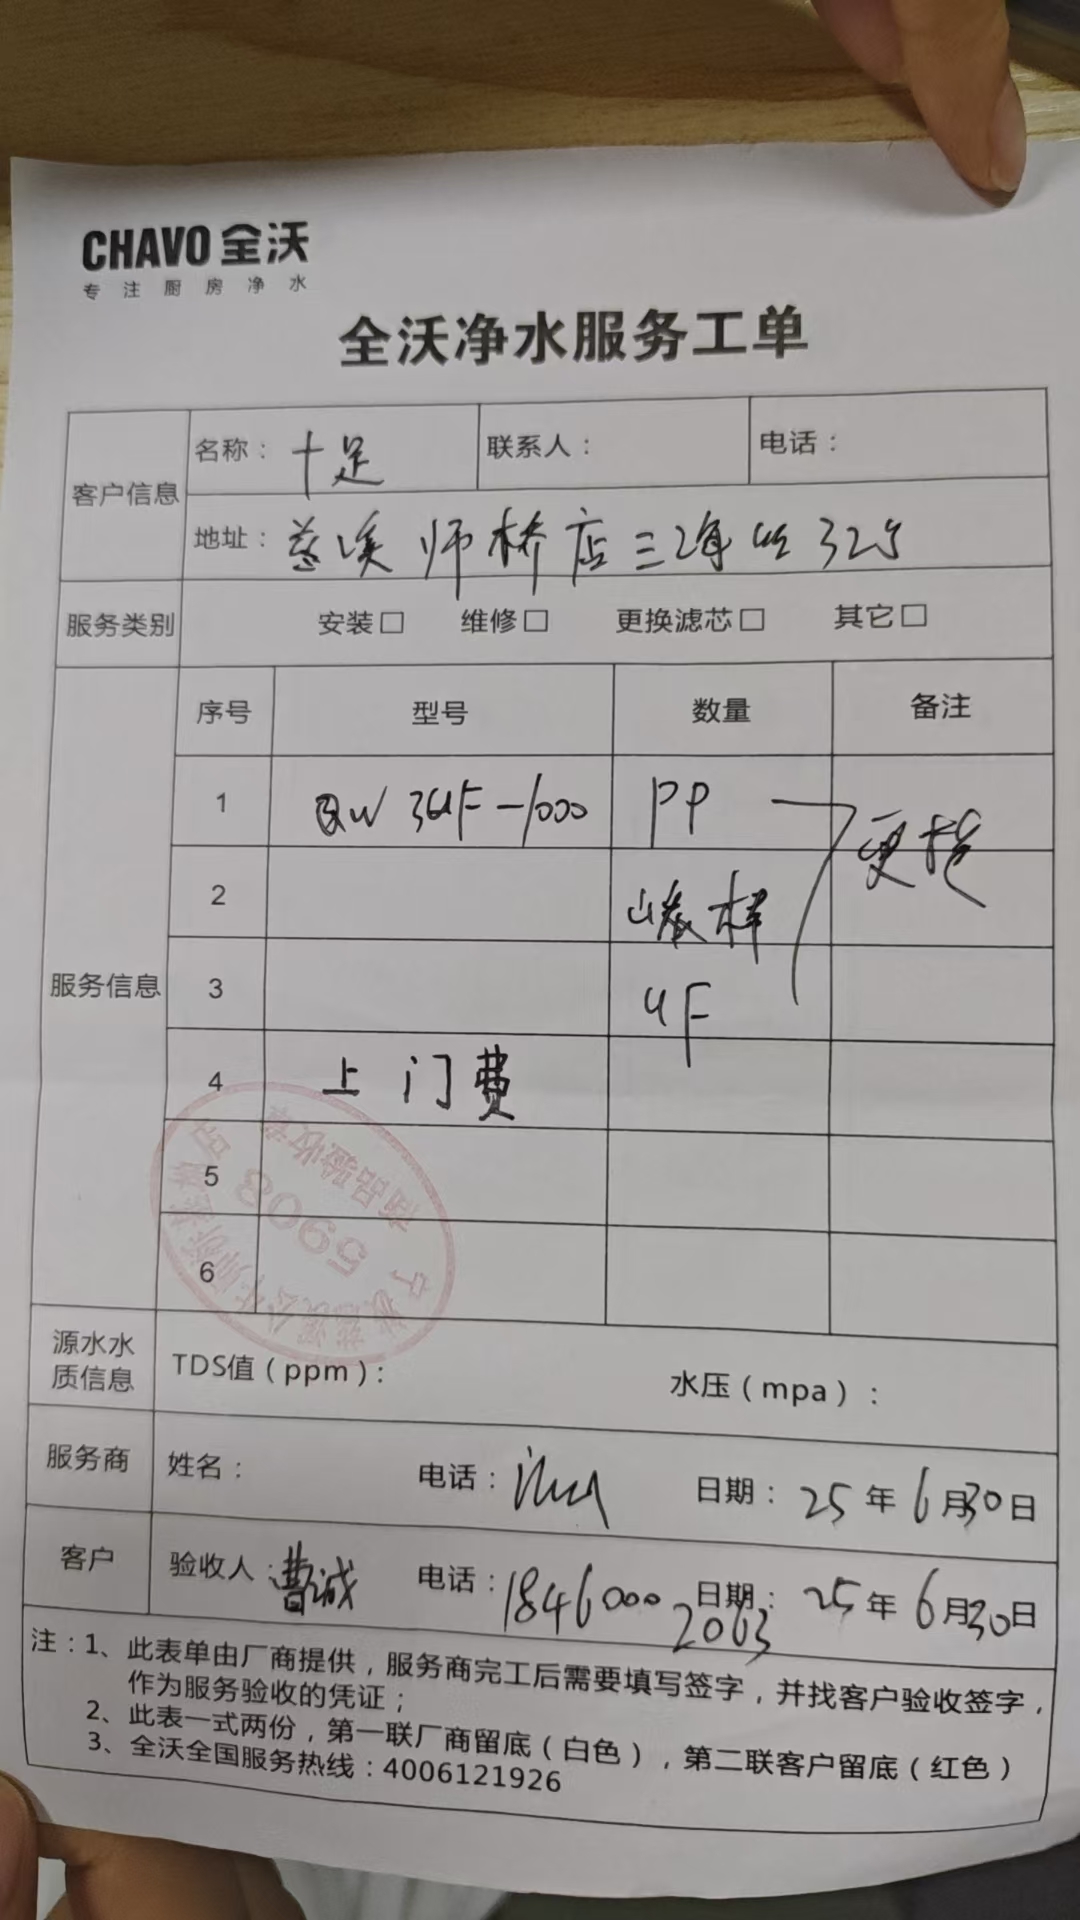 CHAVO 全沃
专注厨房净水
全沃净水服务工单
客户信息 名称：十足 联系人： 电话：
地址：慈溪师桥店三海路325
服务类别 安装□ 维修□ 更换滤芯□ 其它□
服务信息 序号 型号 数量 备注
1 QW 3UF-1000 PP 更换
2 碳棒
3 UF
4 上门费
5
6
5903
商品验收章
源水水质信息 TDS值（ppm）： 水压（mpa）：
服务商 姓名： 电话： 日期：25年6月30日
客户 验收人：曹诚 电话：18460002063 日期：25年6月30日
注：1、此表单由厂商提供，服务商完工后需要填写签字，并找客户验收签字，
作为服务验收的凭证；
2、此表一式两份，第一联厂商留底（白色），第二联客户留底（红色）
3、全沃全国服务热线：4006121926